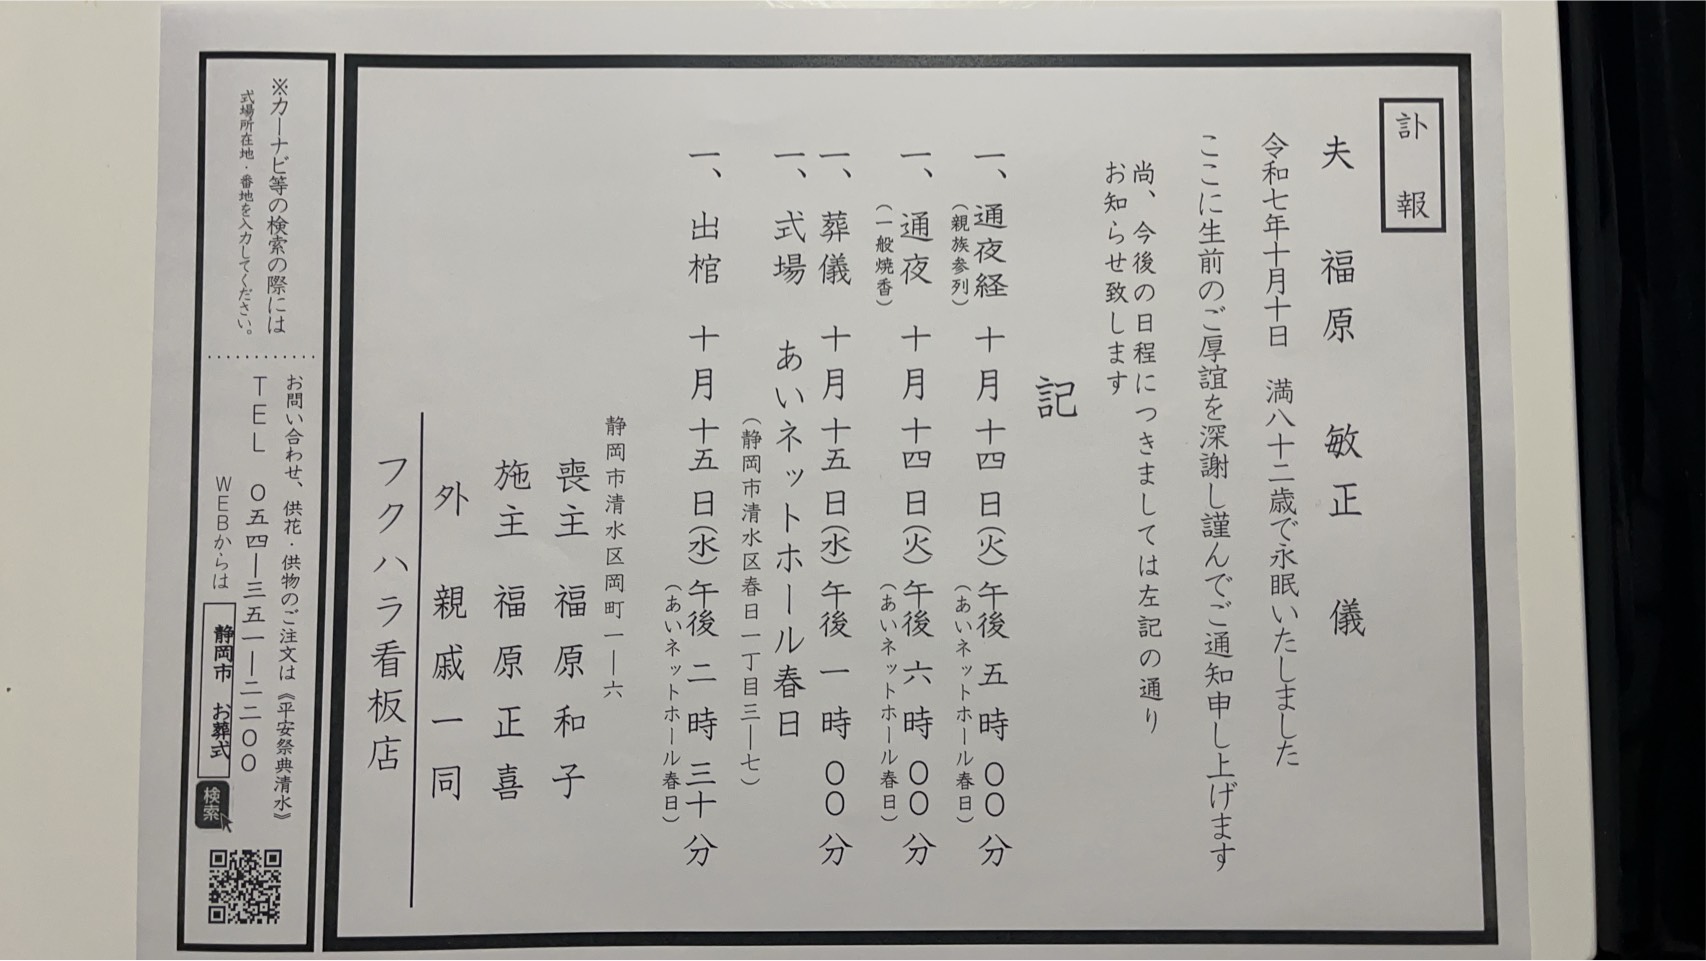 訃報
夫 福原 敏正 儀
令和七年十月十日 満八十二歳で永眠いたしました
ここに生前のご厚誼を深謝し謹んでご通知申し上げます
尚、今後の日程につきましては左記の通り
お知らせ致します
記
一、通夜経 十月十四日(火)午後五時〇〇分
(親族参列) (あいネットホール春日)
一、通夜 十月十四日(火)午後六時〇〇分
(一般焼香) (あいネットホール春日)
一、葬儀 十月十五日(水)午後一時〇〇分
一、式場 あいネットホール春日
(静岡市清水区春日一丁目三―七)
一、出棺 十月十五日(水)午後二時三十分
(あいネットホール春日)
静岡市清水区岡町一―六
喪主 福原和子
施主 福原正喜
外 親戚一同
フクハラ看板店
※カーナビ等の検索の際には
式場所在地・番地を入力してください。
お問い合わせ、供花・供物のご注文は《平安祭典清水》
TEL 〇五四―三五一―二二〇〇
WEBからは 静岡市 お葬式 検索